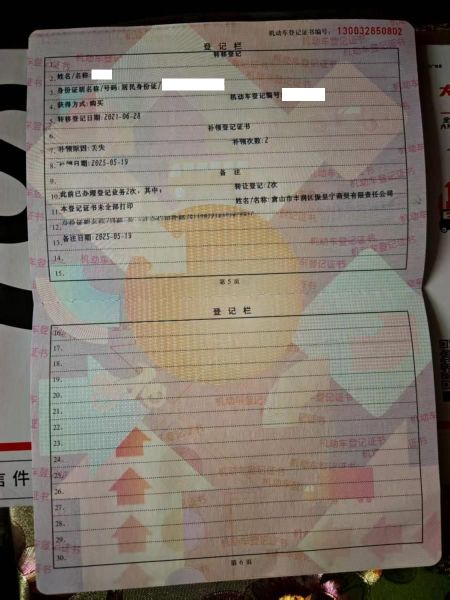 机动车登记证书编号: 130032850802
登 记 栏
1. 转移登记
2. 姓名/名称:
3. 身份证明名称/号码: 居民身份证/
4. 获得方式: 购买 机动车登记编号:
5. 转移登记日期: 2021-06-28
6. 补领登记证书
7. 补领原因: 丢失 补领次数: 2
8. 补领日期: 2025-05-19
9. 备 注
10. 此前已办理登记业务2次, 其中: 转让登记: 2次
11. 本登记证书未全部打印 姓名/名称: 唐山市丰润区振呈宁商贸有限责任公司
12.
13. 备注日期: 2025-05-19
14.
15.
第 5 页
登 记 栏
16.
17.
18.
19.
20.
21.
22.
23.
24.
25.
26.
27.
28.
29.
30.
第 6 页
信 件